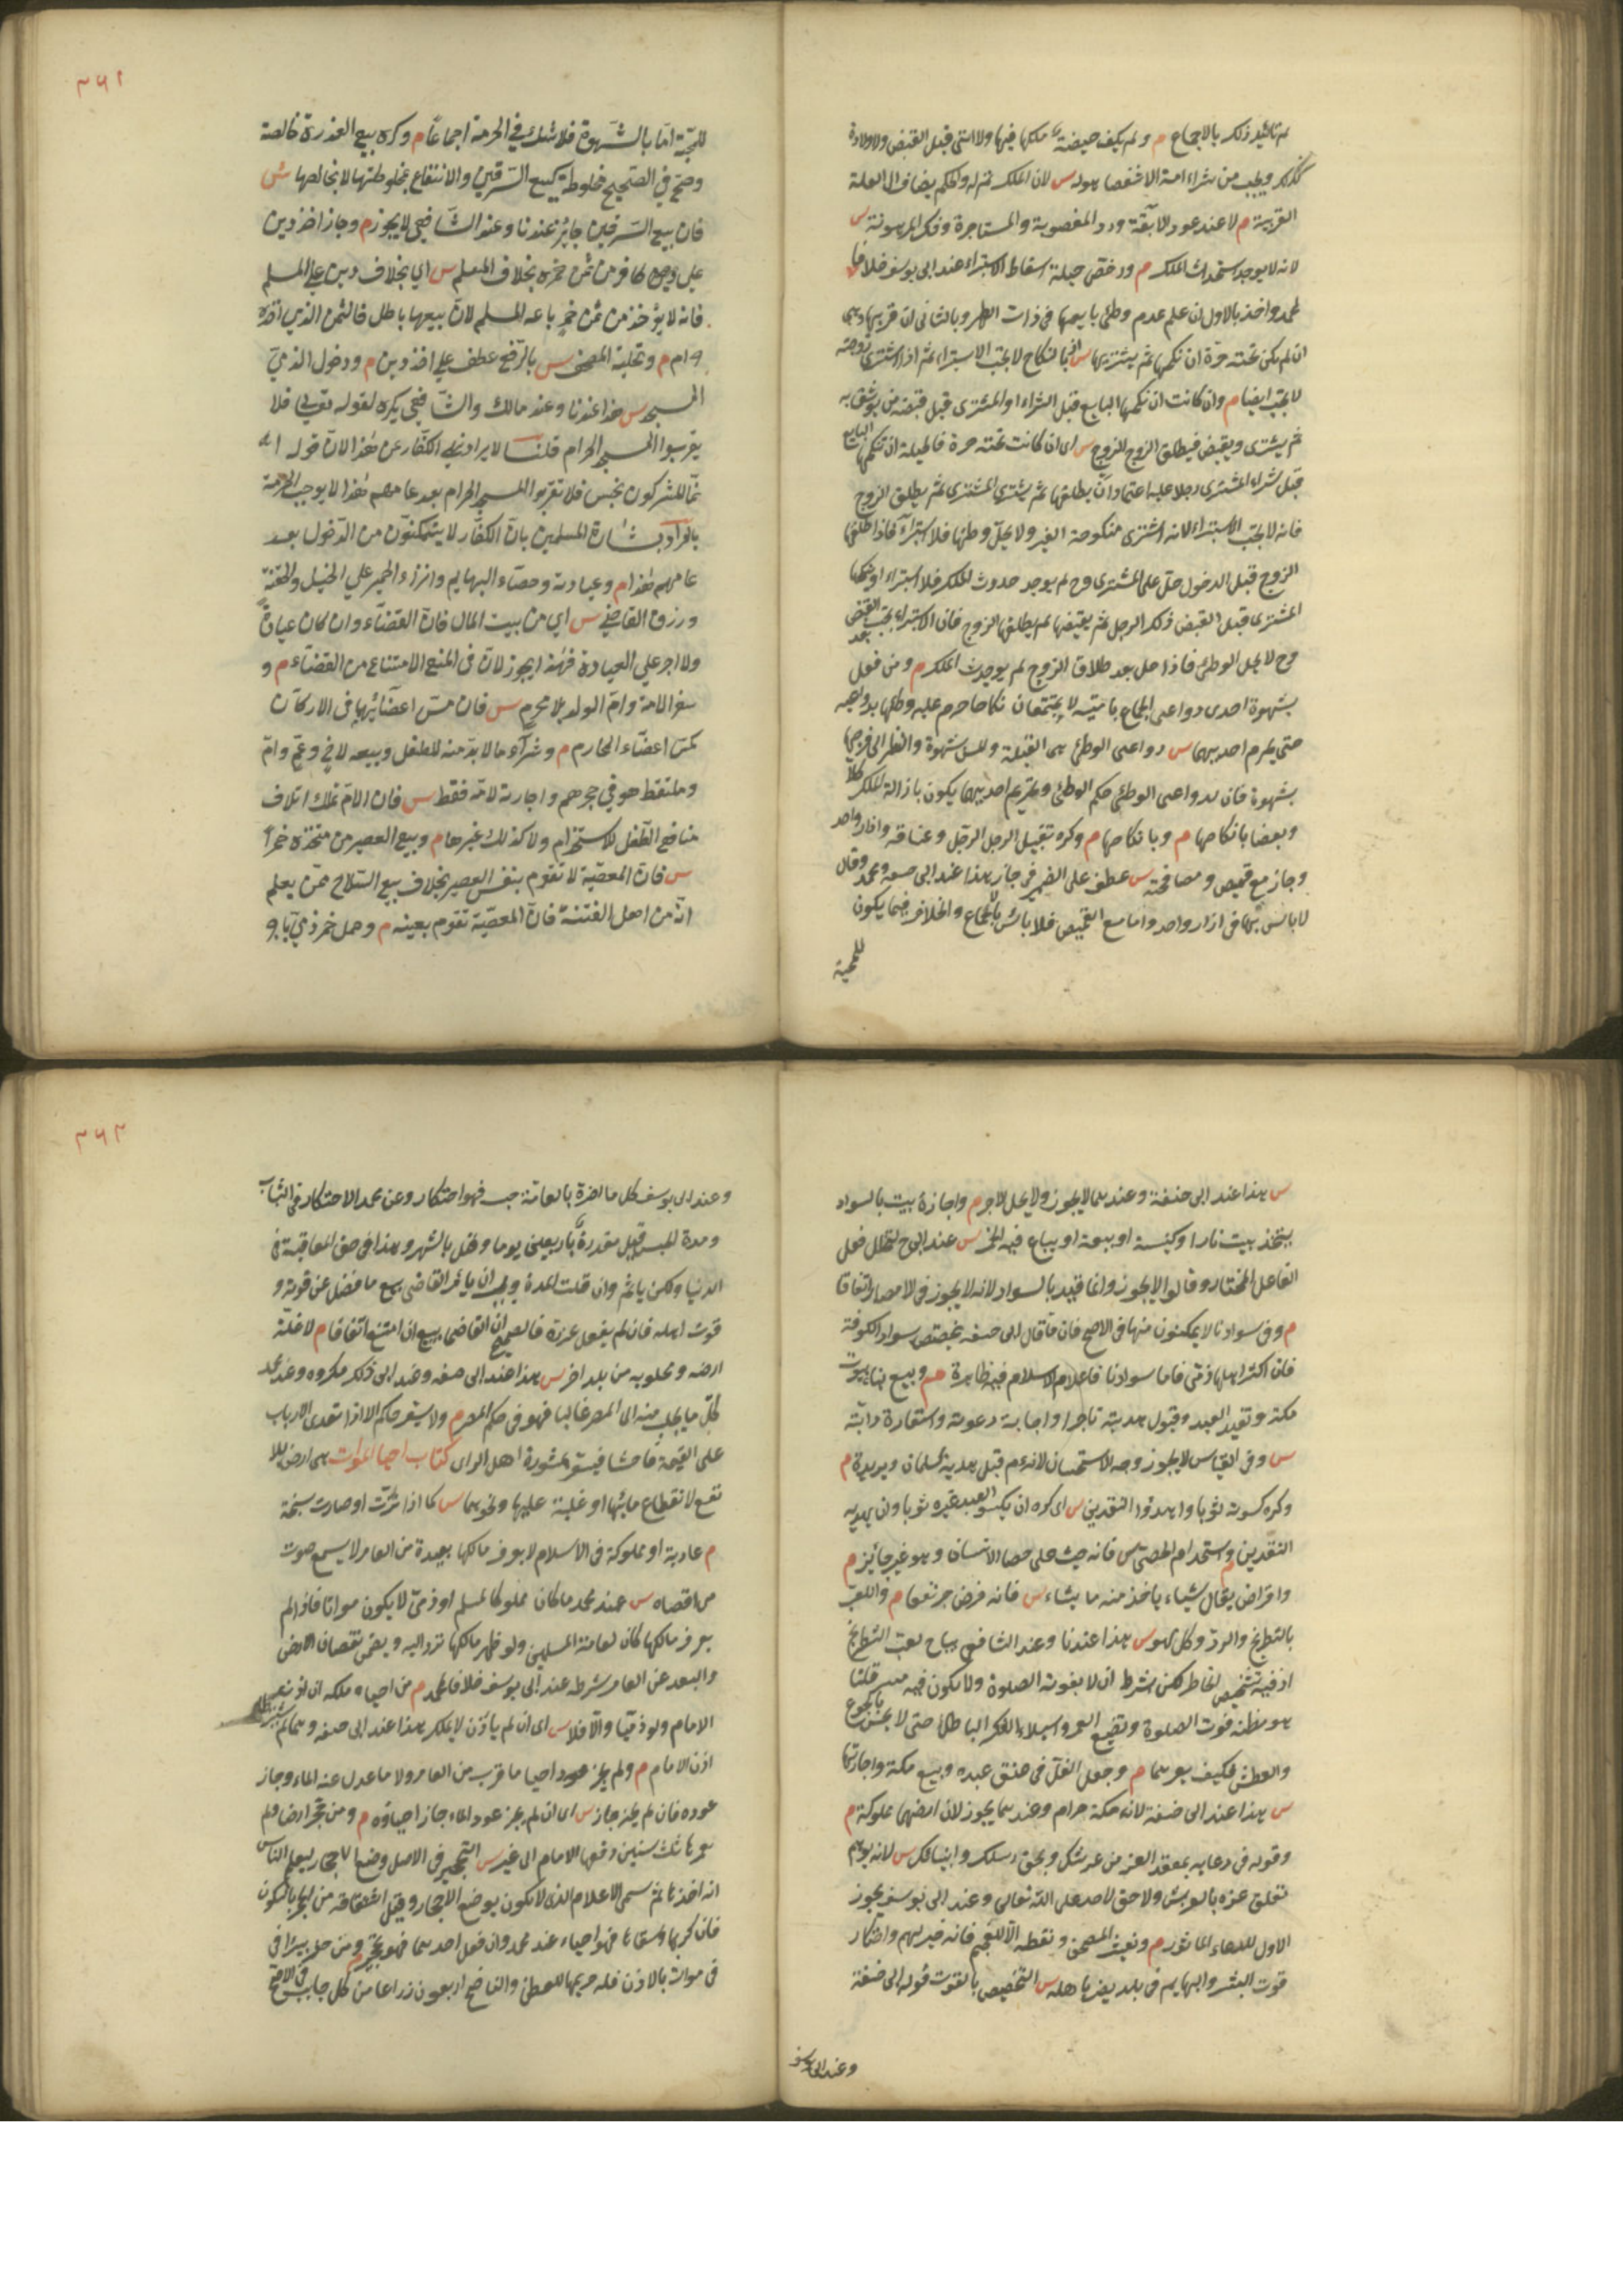 ٣٦١
لم تالثيد ذلك بالاجماع م ولم يكف حيضة ملكها فيها ولا التى قبل القبض ولا ولادة
كذلك ويجب من شراء امة الا شقصا هو له س لان الملك تم له والحكم يضاف الى العلة
القريبة م لا عند عود الآبقة ورد المغصوبة والمستاجرة وفك المرهونة س
لانه لا يوجد استحداث الملك م ورخص حيلة اسقاط الاستبراء عند ابى يوسف خلافا
لمحمد واخذ بالاول ان علم عدم وطئ بايعها فى ذات الطهر وبالثانى ان قربها وهى
ان لم يكن تحته حرة ان ينكحها ثم يشتريها س اذ بالنكاح لا يجب الاستبراء ثم اذا اشترى زوجته
لا يجب ايضا م وان كانت ان ينكحها البايع قبل الشراء او المشترى قبل قبضه من يوثق به
ثم يشترى ويقبض فيطلق الزوج س اى ان كانت تحته حرة فالحيلة ان ينكحها البايع
قبل شراء المشترى رجلا عليه اعتماد ان يطلقها ثم يشترى المشترى ثم يطلق الزوج
فانه لا يجب الاستبراء لانه اشترى منكوحة الغير ولا يحل وطئها فلا استبراء فاذا طلقها
الزوج قبل الدخول حل على المشترى وح لم يوجد حدوث الملك فلا استبراء او ينكحها
المشترى قبل القبض ذلك الرجل ثم يقبضها ثم يطلقها الزوج فان الاستبراء يجب بعد القبض
وح لا يحل الوطئ فاذا حل بعد طلاق الزوج لم يوجد حدث الملك م ومن فعل
بشهوة احدى دواعى الجماع بامتيه لا يجتمعان نكاحا حرم عليه وطئها بدواعيه
حتى يحرم احديهما س دواعى الوطئ هى القبلة والمس بشهوة والنظر الى فرجها
بشهوة فان لدواعى الوطئ حكم الوطئ وتحريم احديهما يكون بازالة الملك كلا
وبعضا بانكاحها م وبانكاحها م وكره تقبيل الرجل الرجل وعناقه فى ازار واحد
وجاز مع قميص ومصافحته س عطف على الضمير فى جاز هذا عند ابى حنيفة ومحمد وقال
لا باس بهما فى ازار واحد واما مع القميص فلا باس بالاجماع والخلاف فيما يكون
للمحبة
للمحبّة امّا بالشّهوة فلا شكّ في الحرمة اجماعًا م وكره بيع العذرة خالصة
وصحّ في الصّحيح مخلوطة كبيع السّرقين والانتفاع بمخلوطتها لا بخالصها ش
فان بيع السّرقين جائز عندنا وعند الشّافعي لا يجوز م وجاز اخذ دين
على كافر من ثمن خمره بخلاف المسلم س اي بخلاف دين على المسلم
فانه لا يؤخذ من ثمن خمر باعه المسلم لانّ بيعها باطل فالثمن الذي اخذه
حرام م وتحلية المصحف س بالرّفع عطف علي اخذ دين م ودخول الذميّ
المسجد س هذا عندنا وعند مالك والشّافعي يكره لقوله تعالى فلا
يقربوا المسجد الحرام قلنا لا يراد نهي الكفّار عن هٰذا لانّ قوله
انّما المشركون نجس فلا يقربوا المسجد الحرام بعد عامهم هٰذا لا يوجب الحرمة
بل المراد بشارة المسلمين بانّ الكفّار لا يتمكّنون من الدّخول بعد
عامهم هٰذا م وعيادته وخصاء البهايم وانزاء الحمير علي الخيل والحقنة
ورزق القاضي س اي من بيت المال فانّ القضاء وان كان عبادةً
ولا اجر علي العبادة فهٰذا يجوز لانّ في المنع الامتناع من القضاء م و
سفر الامة وامّ الولد بلا محرم س فان مسّ اعضائها في الاركاب
كمسّ اعضاء المحارم م وشراء ما لا بدّ منه للطفل وبيعه لاخ وعمّ وامّ
وملتقط هو في حجرهم واجارته لامّه فقط س فان الامّ تملك اتلاف
منافع الطّفل للاستخدام ولا كذلك غيرها م وبيع العصير من متّخذه خمرًا
س فانّ المعصية لا تقوم بنفس العصير بخلاف بيع السّلاح ممّن يعلم
انّه من اهل الفتنة فانّ المعصية تقوم بعينه م وحمل خمر ذميّ باجر
٣٦٢
س هذا عند ابى حنيفة وعندهما لا يجوز ولا يحل الاجر م واجارة بيت بالسواد
يتخذ بيت نار او كنيسة او بيعة او يباع فيه الخمر س عند ابى ح لتخلل فعل
الفاعل المختار وقالوا لا يجوز وانما قيد بالسواد لانه لا يجوز فى الامصار اتفاقا
م وفى سوادنا لا يمكنون منها فى الاصح فان ما قال ابى حنيفة يختص بسواد الكوفة
فان اكثر اهلها ذمى فاما سوادنا فاعلام الاسلام فيه ظاهرة م وبيع بناء بيوت
مكة وتقييد العبد وقبول هديته تاجرا واجابة دعوته واستعارة دابته
س وفى القياس لا يجوز وجه الاستحسان لانه عم قبل هدية سلمان وبريرة م
وكره كسوته ثوبا واهداؤه النقدين س اى كره ان يكسو العبد غيره ثوبا وان يهديه
النقدين م واستخدام الخصى س فانه حث على خصا الانسان وهو غير جائز م
واقراض بقال شياء ياخذ منه ما يشاء س فانه قرض جر نفعا م واللعب
بالشطرنج والنرد وكل لهو س هذا عندنا وعند الشافعى يباح لعب الشطرنج
اذ فيه تشخيص الخاطر لكن بشرط ان لا يفوته الصلوة ولا يكون فيه ميسر قلنا
هو مظنه فوت الصلوة وتضيع العمر واستيلاء الفكر الباطل حتى لا يحس بالجوع
والعطش فكيف بغيرهما م وجعل الغل فى عنق عبده وبيع مكة واجارتها
س هذا عند ابى حنيفة لانه مكة حرام وعندهما يجوز لان ارضها مملوكة م
وقوله فى دعايه بمعقد العز من عرشك وبحق رسلك وانبيائك س لانه يوهم
تعلق عزه بالعرش ولا حق لاحد على الله تعالى وعند ابى يوسف يجوز
الاول للدعاء الماثور م وتعشير المصحف ونقطه الا للعجم فانه خير لهم واحتكار
قوت البشر والبهايم فى بلد يضر باهله س التخصيص بالقوت قول ابى حنيفة
وعند ابى يوسف
وعند ابى يوسف كل ما اضر بالعامة حبسه فهو احتكار وعن محمد الاحتكار فى الثياب
ومدة الحبس قيل مقدرة باربعين يوما وقيل بالشهر وهذا فى حق المعاقبة فى
الدنيا ولكن ياثم وان قلت المدة ويجب ان يامر القاضى ببيع ما فضل عن قوته و
قوت اهله فان لم يفعل عزره فالصحيح ان القاضى يبيع ان امتنع اتفاقا م لا غلة
ارضه ومجلوبه من بلد اخر س هذا عند ابى حنيفة وعند ابى ذلك مكروه وعند محمد
كل ما يجلب منه الى المصر غالبا فهو فى حكم المصر م ولا يسعر حاكم الا اذا تعدى الارباب
على القيمة فاحشا فيسعر بمشورة اهل الراى كتاب احيا الموات هى ارض بلا
نفع لانقطاع مائها او غلبة عليها ونحوهما س كما اذا نزت او صارت سبخة
م عادية او مملوكة فى الاسلام لا يعرف مالكها بعيدة من العامر لا يسمع صوت
من اقصاه س عند محمد ما كان مملوكا لمسلم او ذمى لا يكون مواتا فاذا لم
يعرف مالكها كان لعامة المسلمين ولو ظهر مالكها ترد اليه ويضمن نقصان الارض
والبعد عن العامر شرطه عند ابى يوسف خلافا لمحمد م من احياه ملكه ان اذن
الامام ولو ذميا والا فلا س اى ان لم ياذن لا يملك هذا عند ابى حنيفة وهما لم يشترطا
اذن الامام م ولم يجز احيا ما قرب من العامر ولا ما عدل عنه الماء وجاز
عوده فان لم يجز جاز س اى ان لم يجز عود الماء جاز احياؤه م ومن حجر ارضا ولم
يعمرها ثلث سنين دفعها الامام الى غيره س التحجير فى الاصل وضع الاحجار ليعلم الناس
انه اخذها ثم سمى الاعلام الذى لا يكون بوضع الاحجار وقيل اشتقاقه من الحجر بالسكون
فان كربها وسقاها فهو احياء عند محمد وان فعل احدهما فهو تحجير م ومن حفر بيرا فى
فى موات بالاذن فله حريمها للعطن والناضح اربعون ذراعا من كل جانب فى الاصح